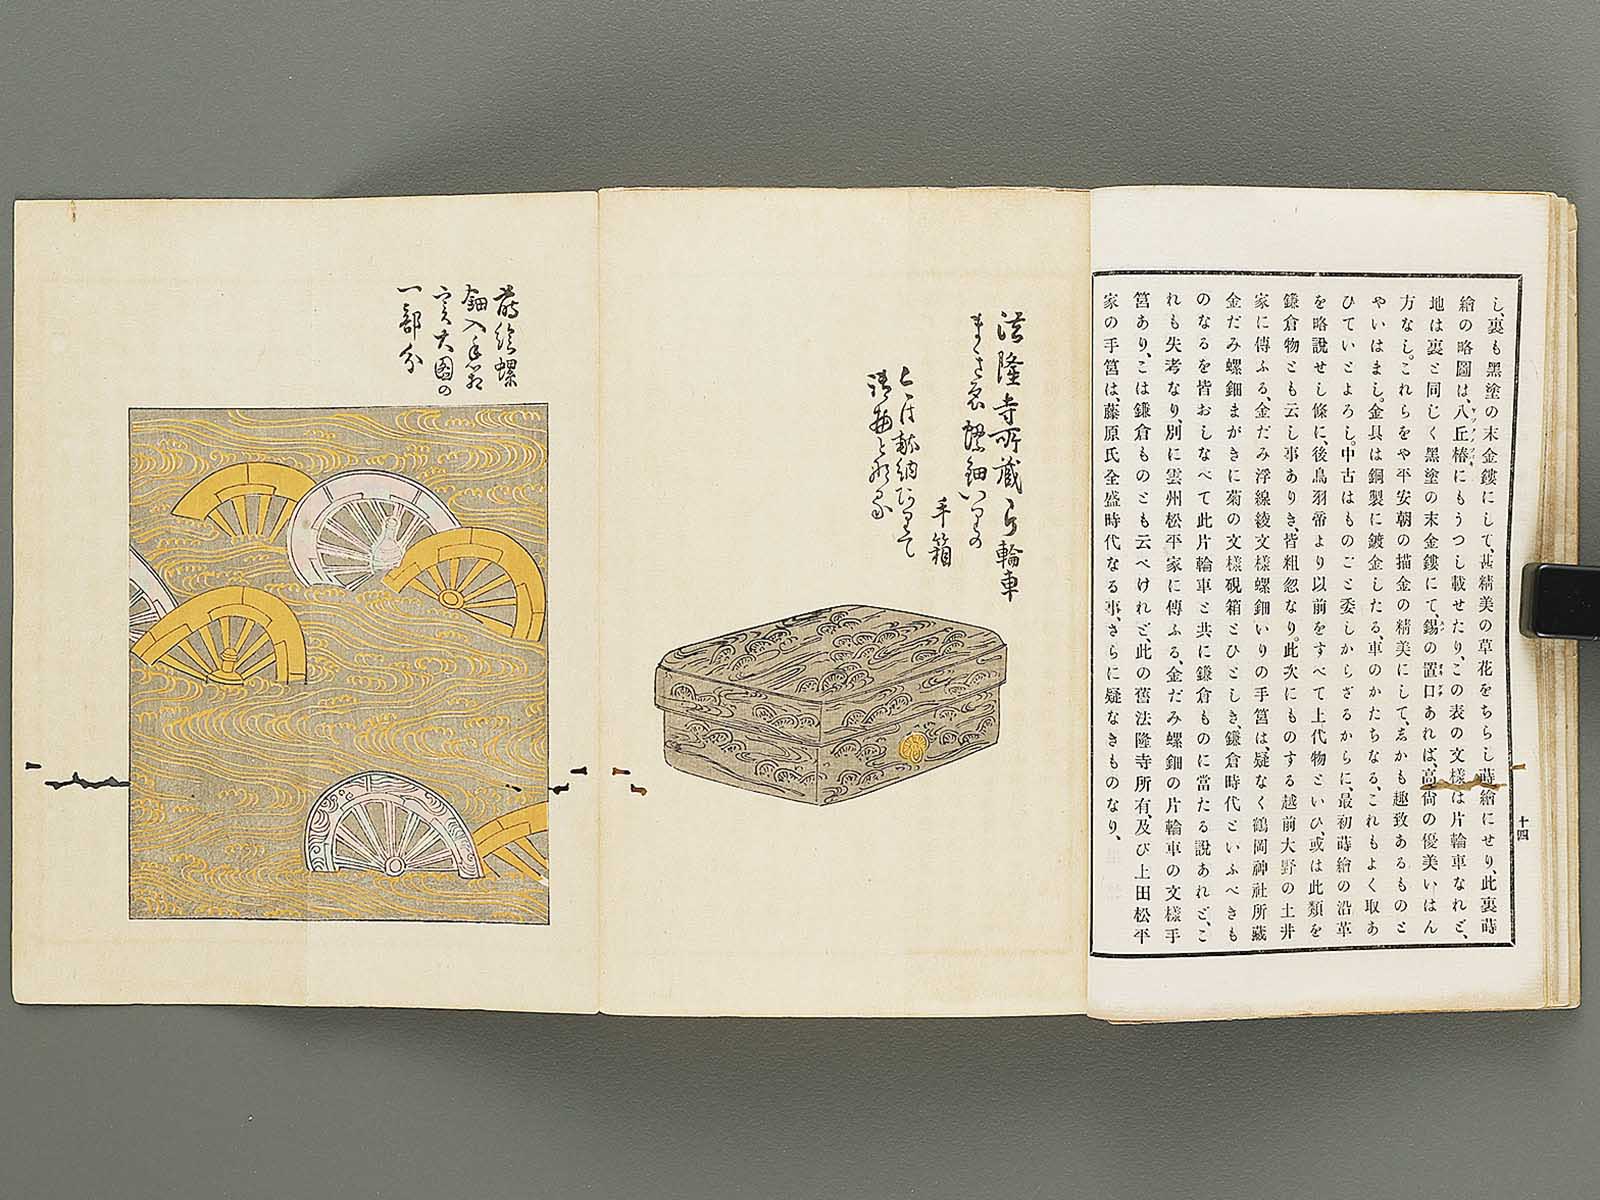 し、裏も黑塗の末金鏤にして、甚精美の草花をちらし蒔繪にせり、此裏蒔
繪の略圖は、八丘椿にもうつし載せたり、この表の文樣は片輪車なれど、
地は裏と同じく黑塗の末金鏤にて、錫の置口あれば、高尙の優美いはん
方なし。これらをや平安朝の描金の精美にして、しかも趣致あるものと
やいはまし、金具は銅製に鍍金したる、車のかたちなる、これもよく取あ
ひていとよろし。中古はものごと委しからざるからに、最初蒔繪の沿革
を略說せし條に、後鳥羽帝より以前をすべて上代物といひ、或は此類を
鎌倉物とも云し事ありき、皆粗忽なり。此次にものする越前大野の土井
家に傳ふる、金だみ浮線綾文樣螺鈿いりの手筥は、疑なく鶴岡神社所藏
金だみ螺鈿まがきに菊の文樣硯箱とひとしき、鎌倉時代といふべきも
のなるを皆おしなべて此片輪車と共に鎌倉ものに當たる說あれど、こ
れも失考なり、別に雲州松平家に傳ふる、金だみ螺鈿の片輪車の文樣手
筥あり、こは鎌倉ものとも云べけれど、此の舊法隆寺所有、及び上田松平
家の手筥は、藤原氏全盛時代なる事、さらに疑なきものなり、
十四
法隆寺所藏片輪車
まき繪螺鈿いりの
手箱
今は獻納
御物となる
蒔繪螺
鈿入手筥
實大圖の
一部分